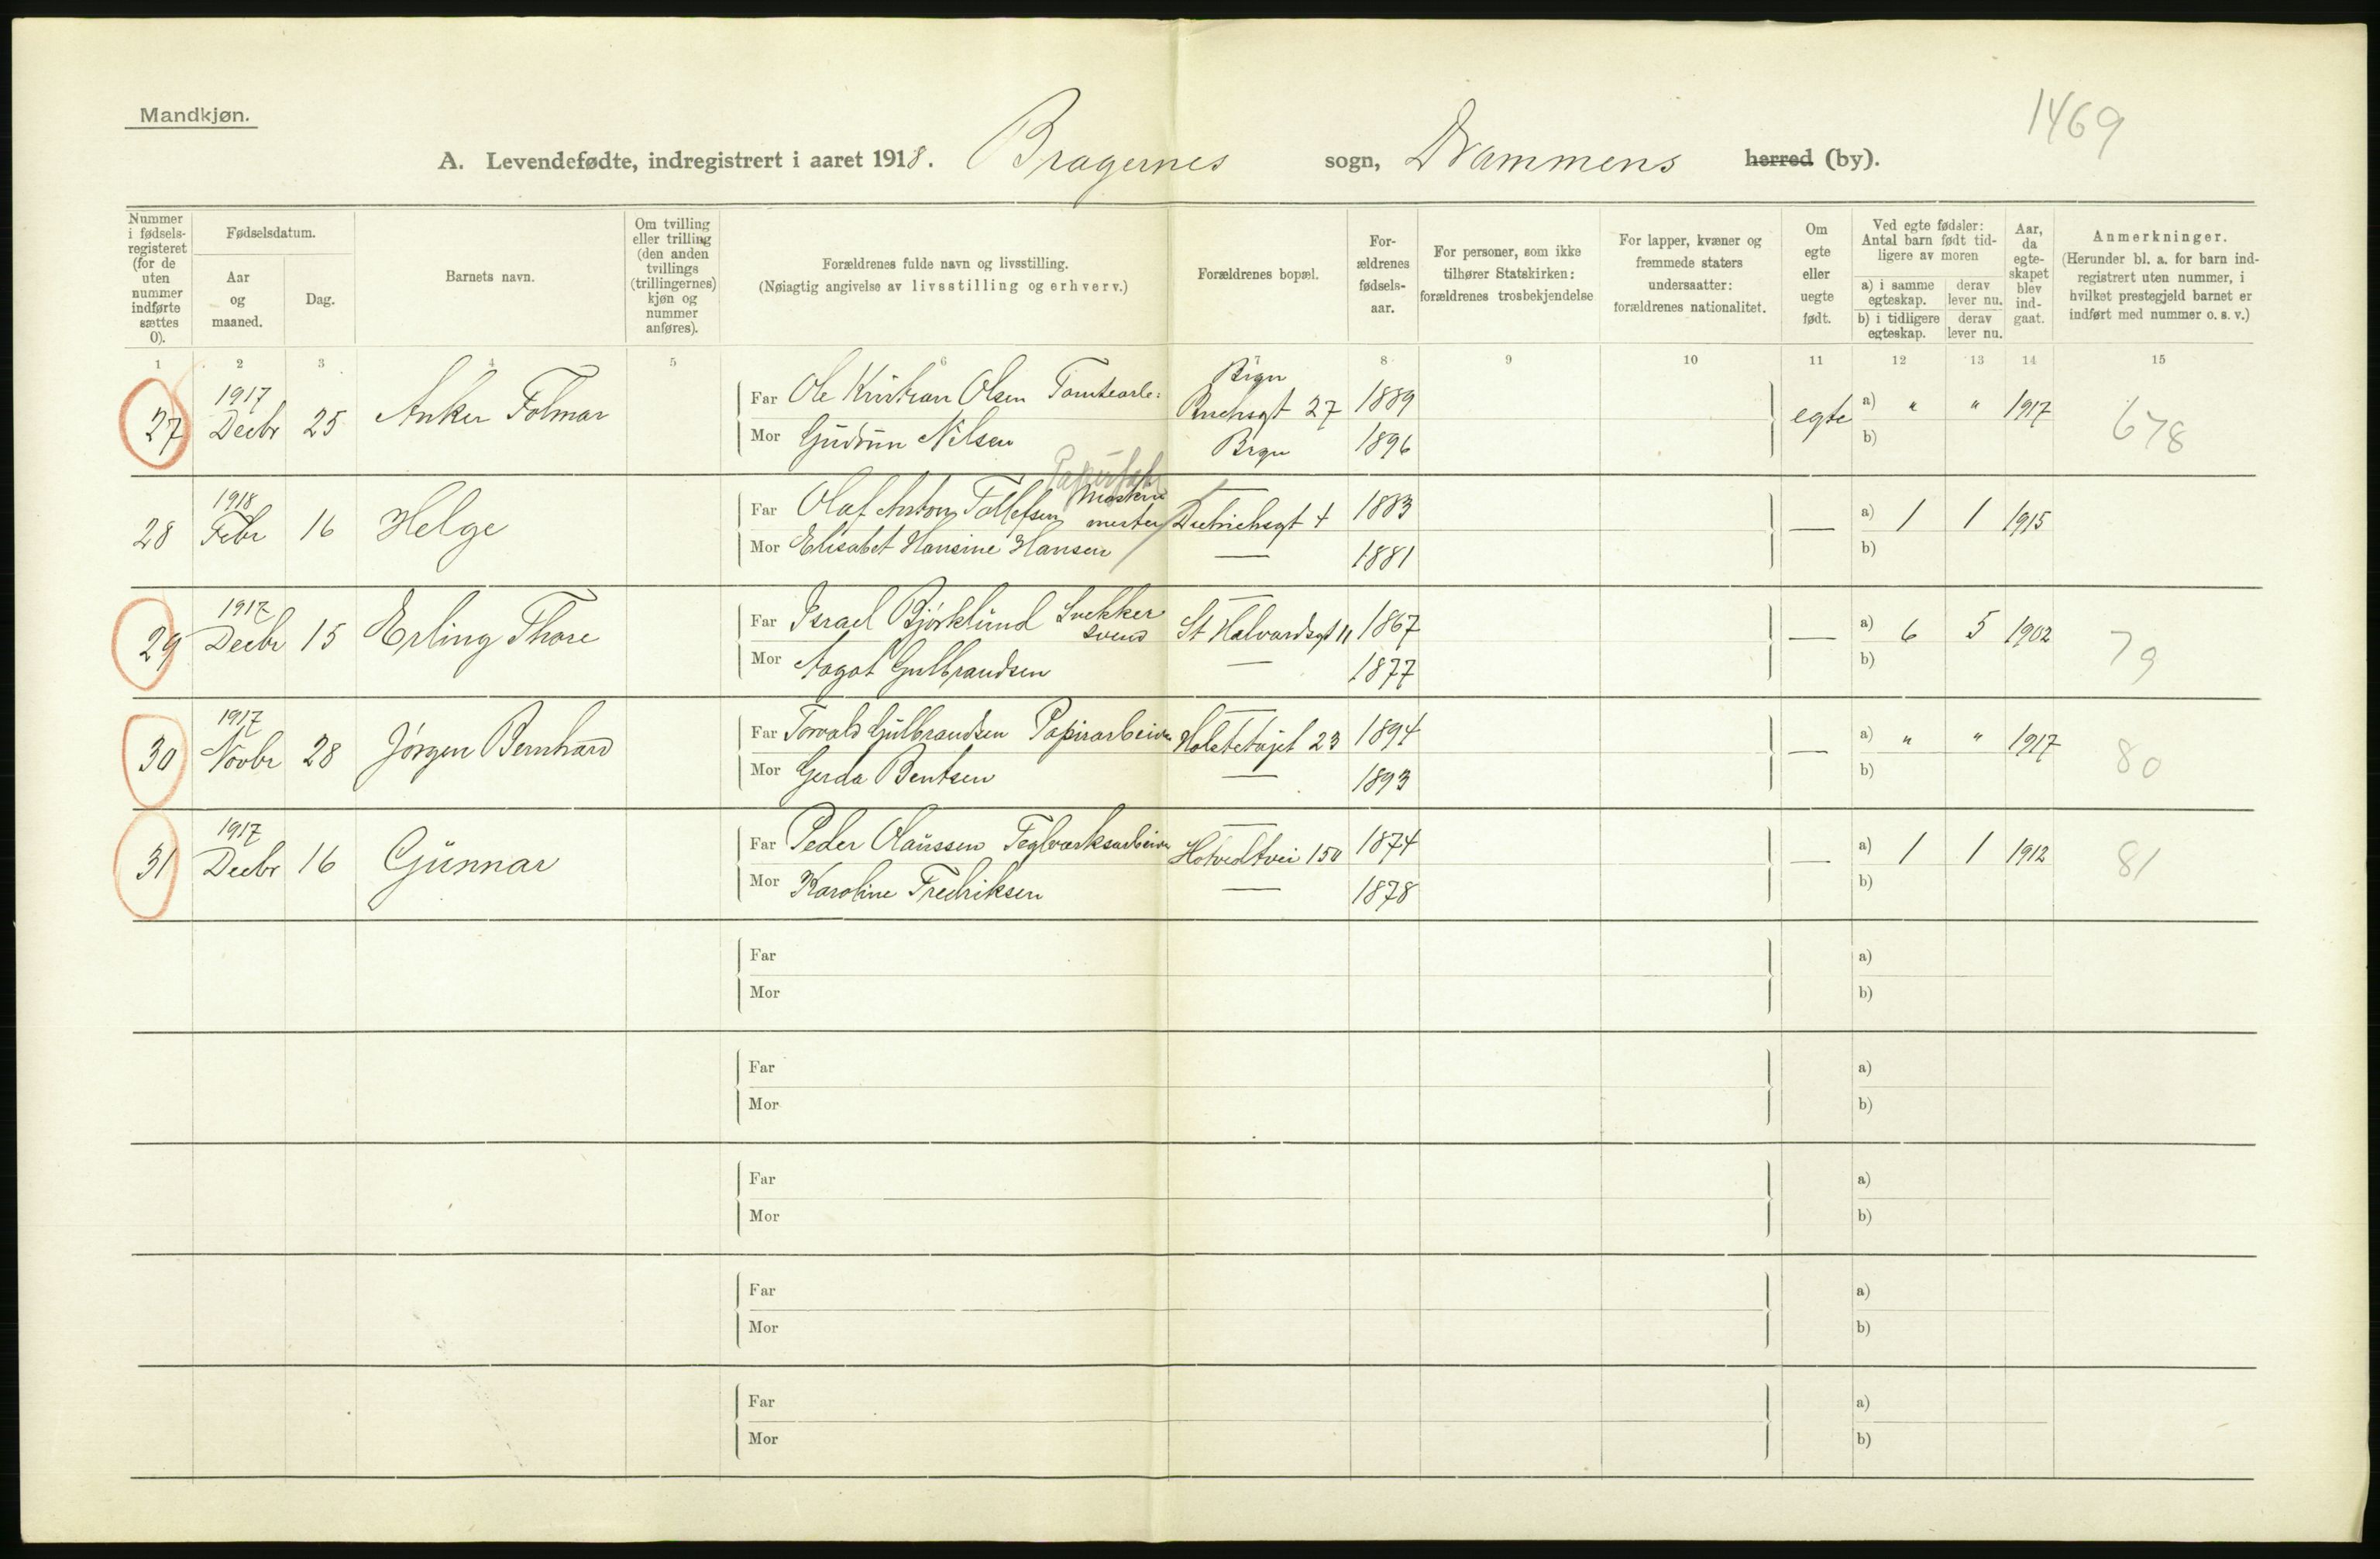 Mandkjøn.
1469
A. Levendefødte, indregistrert i aaret 1918. Bragernes sogn, Drammens herred (by).
Nummer i fødsels-registeret (for de uten nummer indførte sættes 0).
Fødselsdatum.
Aar og maaned.
Dag.
Barnets navn.
Om tvilling eller trilling (den anden tvillings (trillingernes) kjøn og nummer anføres).
Forældrenes fulde navn og livsstilling.
(Nøiagtig angivelse av livsstilling og erhverv.)
Forældrenes bopæl.
For-ældrenes fødsels-aar.
For personer, som ikke tilhører Statskirken: forældrenes trosbekjendelse
For lapper, kvæner og fremmede staters undersaatter: forældrenes nationalitet.
Om egte eller uegte født.
Ved egte fødsler: Antal barn født tid-ligere av moren
a) i samme egteskap.
derav lever nu.
b) i tidligere egteskap.
derav lever nu.
Aar, da egte-skapet blev ind-gaat.
Anmerkninger.
(Herunder bl. a. for barn ind-registrert uten nummer, i hvilket prestegjeld barnet er indført med nummer o. s. v.)
1 2 3 4 5 6 7 8 9 10 11 12 13 14 15
27 1917 Decbr 25 Anker Folmar
Far Ole Kristian Olsen Tomtearb: Brgn 27 1889
Mor Gudrun Nilsen Brgn 1896
egte a) " " 1917 678
b)
28 1918 Febr 16 Helge
Far Olaf Anton Tollefsen Maskinmester Dietrichsgt 4 1883
Mor Elisabet Hansine Hansen — 1881
— a) 1 1 1915
b)
29 1917 Decbr 15 Erling Thore
Far Israel Bjørklund Snekker svend St Halvardsgt 11 1867
Mor Aagot Gulbrandsen — 1877
— a) 6 5 1902 79
b)
30 1917 Novbr 28 Jørgen Bernhard
Far Torvald Gulbrandsen Papirarbeider 23 1894
Mor Gerda Bentsen — 1893
— a) " " 1917 80
b)
31 1917 Decbr 16 Gunnar
Far Peder Olaussen Teglverksarbeider Hotvedtvei 150 1874
Mor Karoline Fredriksen — 1878
— a) 1 1 1912 81
b)
Far a)
Mor b)
Far a)
Mor b)
Far a)
Mor b)
Far a)
Mor b)
Far a)
Mor b)